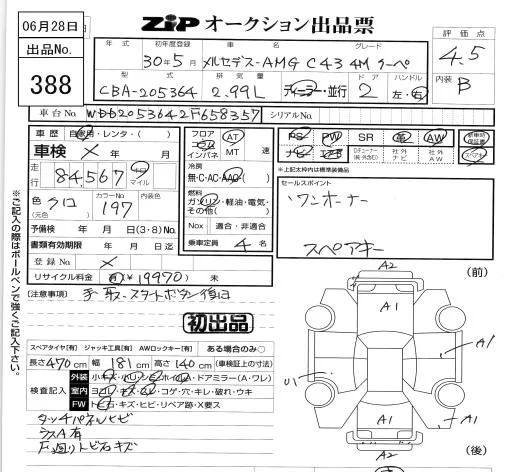 06月28日
出品No.
388
ZIP オークション出品票
年式 初年度登録 車名 グレード
30年5月 メルセデス-AMG C43 4M クーペ
型式 排気量 ドア ハンドル
CBA-205364 2.99L ディーラー・並行 2 左・右
評価点
4.5
内装 B
車台No WDD2053642F658357 シリアルNo
車歴 自家用・レンタ・( )
車検 × 年 月
走行 84,567 キロ マイル
色(元色) クロ カラーNo 197 内装色
予備検 年 月 日(3・8)No
書類有効期限 年 月 日迄
登録No ×
リサイクル料金 有 ¥19970) 未
フロア コラム インパネ AT MT 速
冷房 無・C・AC・AAC・( )
燃料 ガソリン・軽油・電気・その他( )
Nox 適合・非適合
乗車定員 4 名
PS PW SR 革 AW 新車時保証書
ナビ エアB 社外ナビ 社外AW スペアキー
*上記太枠内は標準装備品
セールスポイント
ワンオーナー
スペアキー
[注意事項]
手取、スタートボタン復旧
初出品
※ご記入の際はボールペンで強くご記入下さい。
スペアタイヤ[有] ジャッキ工具[有] AWロックキー[有] ある場合のみ○
長さ 470 cm 幅 181 cm 高さ 140 cm (車検証上の寸法)
検査記入
外装 小キズ・ホリ・シミ・ホイル・ドアミラー(A・ワレ)
室内 ヨゴレ・キズ・スレ・コゲ・穴・キレ・破れ・ウキ
FW トビ石・キズ・ヒビ・リペア跡・X要ス
タッチパネルヒビ
シスA有
F廻りトビ石キズ
(前)
A2
A1
A1
U1
A1
A1
A2
(後)